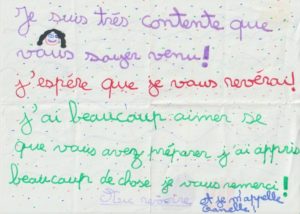 Je suis très contente que
vous soyer venu!
j'espére que je vous revérai!
j'ai beaucoup aimer se
que vous avez préparer j'ai appris
beaucoup de chose je vous remerci!
Au revoire et je m'appelle